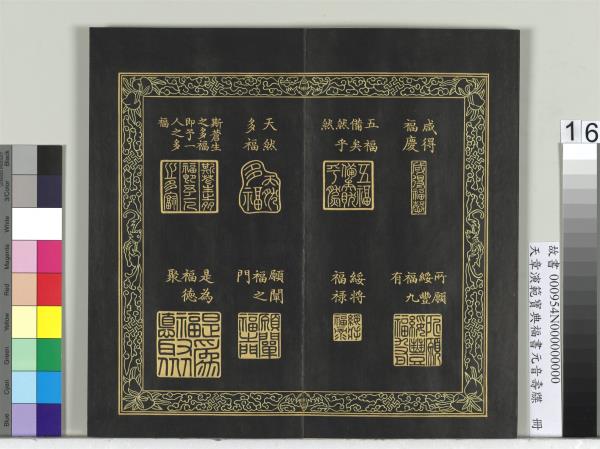 咸得
福慶
五福
備矣
然乎
然
天然
多福
斯蒼生
之多福
即予一
人之多
福
所願
綏豐
福九
有
綏將
福祿
願闡
福之
門
是為
福德
聚
16
故書 000954N000000000
天章演範寶典福書元音壽牒 冊
Black
3/Color
White
Magenta
Red
Yellow
Green
Cyan
Blue